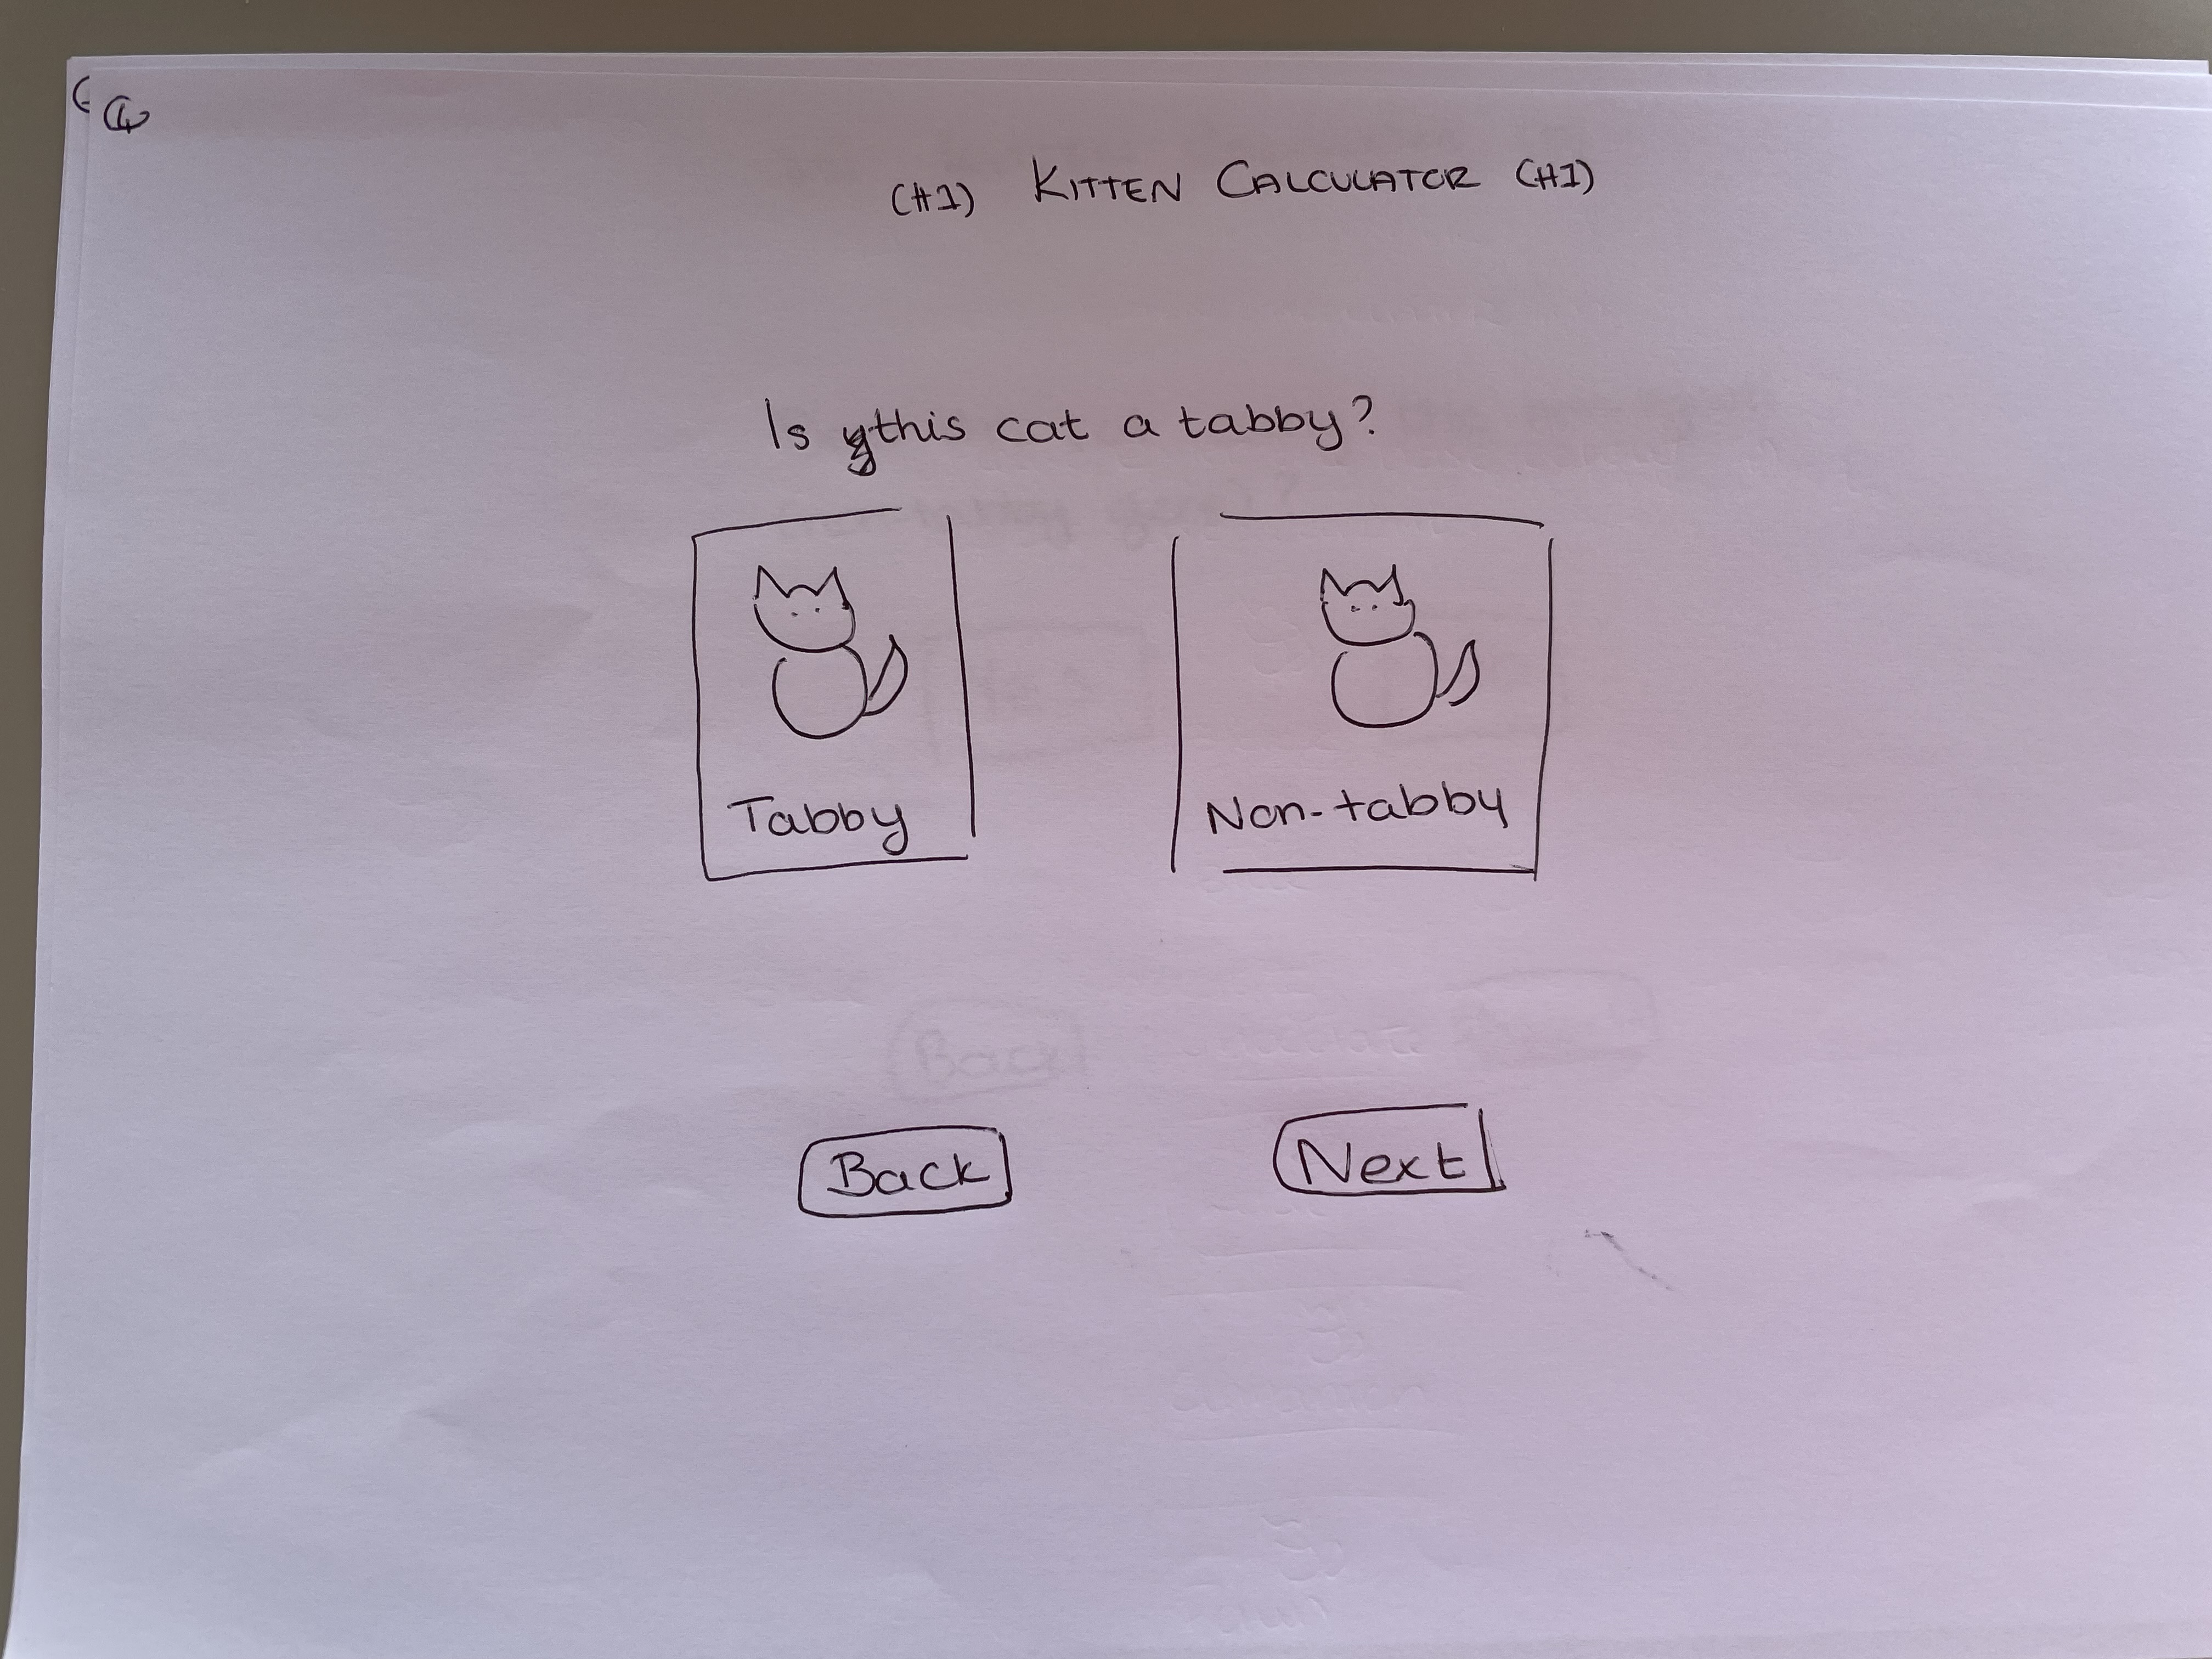 4
(H1) KITTEN CALCULATOR (H1)
Is this cat a tabby?
Tabby
Non-tabby
Back
Back
Next